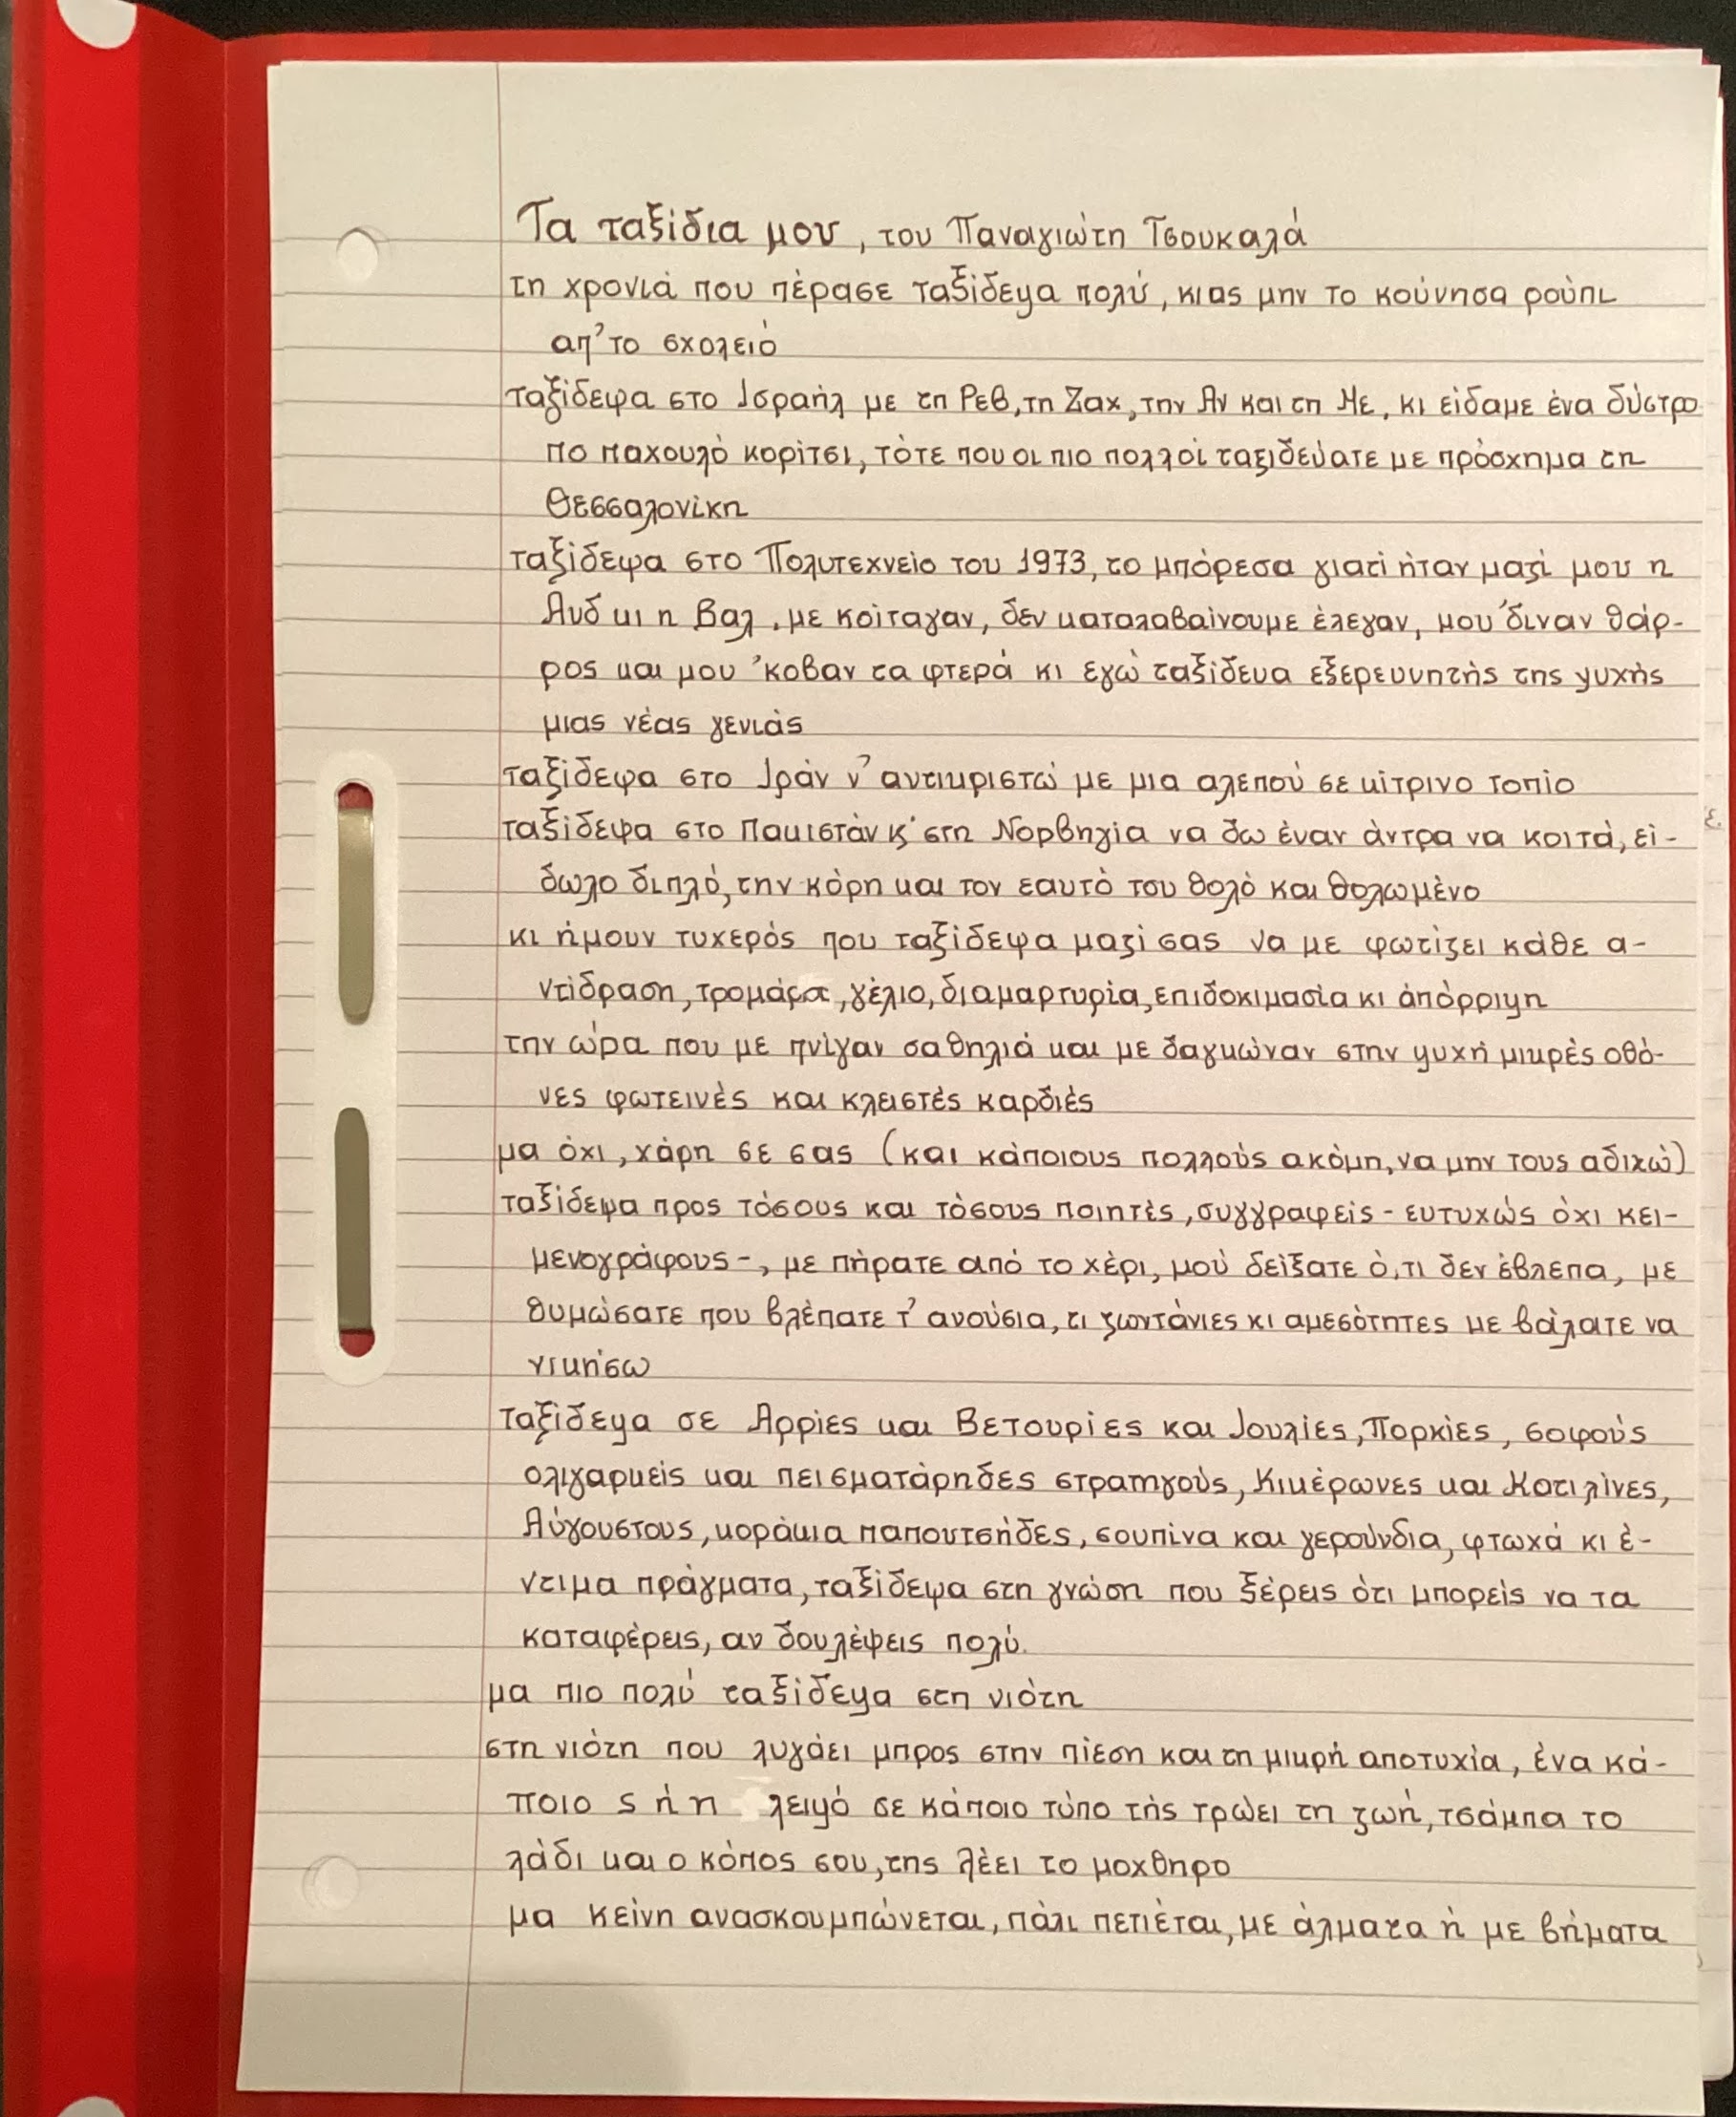 Τα ταξίδια μου, του Παναγιώτη Τσουκαλά
τη χρονιά που πέρασε ταξίδεψα πολύ, κι ας μην το κούνησα ρούπι
απ' το σχολειό
ταξίδεψα στο Ισραήλ με τη Ρεβ, τη Ζαχ, την Αν και τη Με, κι είδαμε ένα δύστρο
πο παχουλό κορίτσι, τότε που οι πιο πολλοί ταξιδεύατε με πρόσχημα τη
Θεσσαλονίκη
ταξίδεψα στο Πολυτεχνείο του 1973, το μπόρεσα γιατί ήταν μαζί μου η
Λυδ κι η Βαλ, με κοίταγαν, δεν καταλαβαίνουμε έλεγαν, μου 'διναν θάρ-
ρος και μου 'κοβαν τα φτερά κι εγώ ταξίδευα εξερευνητής της ψυχής
μιας νέας γενιάς
ταξίδεψα στο Ιράν ν' αντικριστώ με μια αλεπού σε κίτρινο τοπίο
ταξίδεψα στο Πακιστάν κ' στη Νορβηγία να δω έναν άντρα να κοιτά, εί-
δωλο διπλό, την κόρη και τον εαυτό του θολό και θολωμένο
κι ήμουν τυχερός που ταξίδεψα μαζί σας να με φωτίζει κάθε α-
ντίδραση, τρομάρα, γέλιο, διαμαρτυρία, επιδοκιμασία κι απόρριψη
την ώρα που με πνίγαν σα θηλιά και με δαγκώναν στην ψυχή μικρές οθό-
νες φωτεινές και κλειστές καρδιές
μα όχι, χάρη σε σας (και κάποιους πολλούς ακόμη, να μην τους αδικώ)
ταξίδεψα προς τόσους και τόσους ποιητές, συγγραφείς - ευτυχώς όχι κει-
μενογράφους -, με πήρατε από το χέρι, μού δείξατε ό,τι δεν έβλεπα, με
θυμώσατε που βλέπατε τ' ανούσια, τι ζωντάνιες κι αμεσότητες με βάλατε να
νικήσω
ταξίδεψα σε Αρρίες και Βετουρίες και Ιουλίες, Πορκίες, σοφούς
ολιγαρκείς και πεισματάρηδες στρατηγούς, Κικέρωνες και Κατιλίνες,
Αύγουστους, κοράκια παπουτσήδες, σουπίνα και γερούνδια, φτωχά κι έ-
ντιμα πράγματα, ταξίδεψα στη γνώση που ξέρεις ότι μπορείς να τα
καταφέρεις, αν δουλέψεις πολύ.
μα πιο πολύ ταξίδεψα στη νιότη
στη νιότη που λυγάει μπρος στην πίεση και τη μικρή αποτυχία, ένα κά-
ποιο ς ή η λειψό σε κάποιο τύπο τής τρώει τη ζωή, τσάμπα το
λάδι και ο κόπος σου, της λέει το μοχθηρό
μα κείνη ανασκουμπώνεται, πάλι πετιέται, με άλματα ή με βήματα